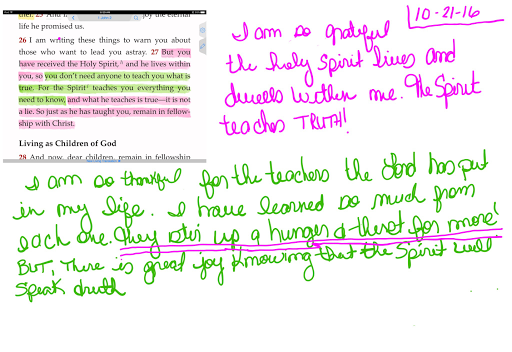 life he promised us.
26 I am writing these things to warn you about
those who want to lead you astray. 27 But you
have received the Holy Spirit, and he lives within
you, so you don't need anyone to teach you what is
true. For the Spirit teaches you everything you
need to know, and what he teaches is true—it is not
a lie. So just as he has taught you, remain in fellow-
ship with Christ.
Living as Children of God
28 And now, dear children, remain in fellowship
10-21-16
I am so grateful
the holy Spirit lives and
dwells within me. The Spirit
teaches TRUTH!
I am so thankful for the teachers the Lord has put
in my life. I have learned so much from
each one. They stir up a hunger & thirst for more!
BUT, There is great joy knowing that the Spirit will
speak truth